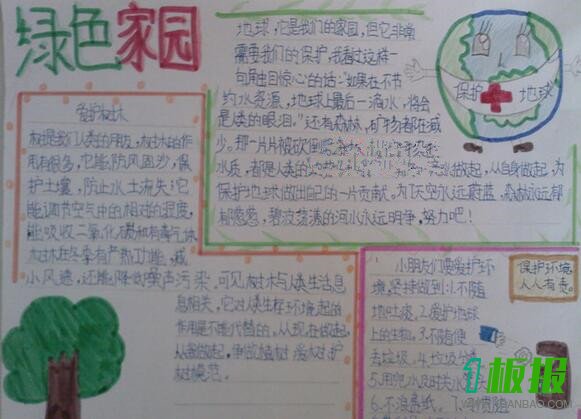 绿色家园
地球,它是我们的家园,但它非常
需要我们的保护,我看过这样一
句触目惊心的话:“如果在不节
约水资源,地球上最后一滴水,将会
是人类的眼泪。”还有森林,矿物都在减
少。那一片片被砍
水质,都是人类的 做起,从自身做起,为
保护地球做出自己的一片贡献。为了天空永远蔚蓝,森林永远郁
郁葱葱,碧波荡漾的河水永远明争,努力吧!
保护 地球
爱护树木
树是我们人类的朋友,树木的作
用有很多,它能防风固沙,保
护土壤,防止水土流失;它
能调节空气中的相对的湿度,
能吸收二氧化碳和有毒气体
树木在冬季有产热功能,减
小风速,还能降低噪声污染,可见树木与人类生活息
息相关,它对人类生存环境起的
作用是不能代替的。从现在做起,
从我做起,争做植树 爱树 护
树模范。
小朋友们要爱护环
境,坚持做到:1.不随
地吐痰。2.爱护地球
上的生物。3.不随便
丢垃圾。4.垃圾分类
5.用完水及时关水
6.不浪费纸。7. 随
保护环境,
人人有责。
板报